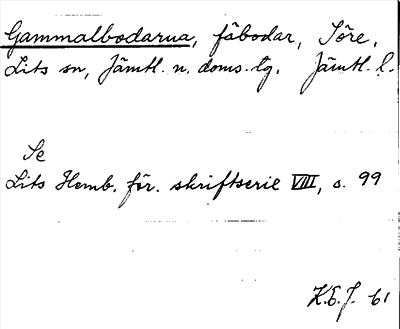 Gammalbodarna, fäbodar, Söre,
Lits sn, Jämtl. n. doms. tg. Jämtl. l.
Se
Lits Hemb. för. skriftserie VIII, s. 99
K.E.J. 61